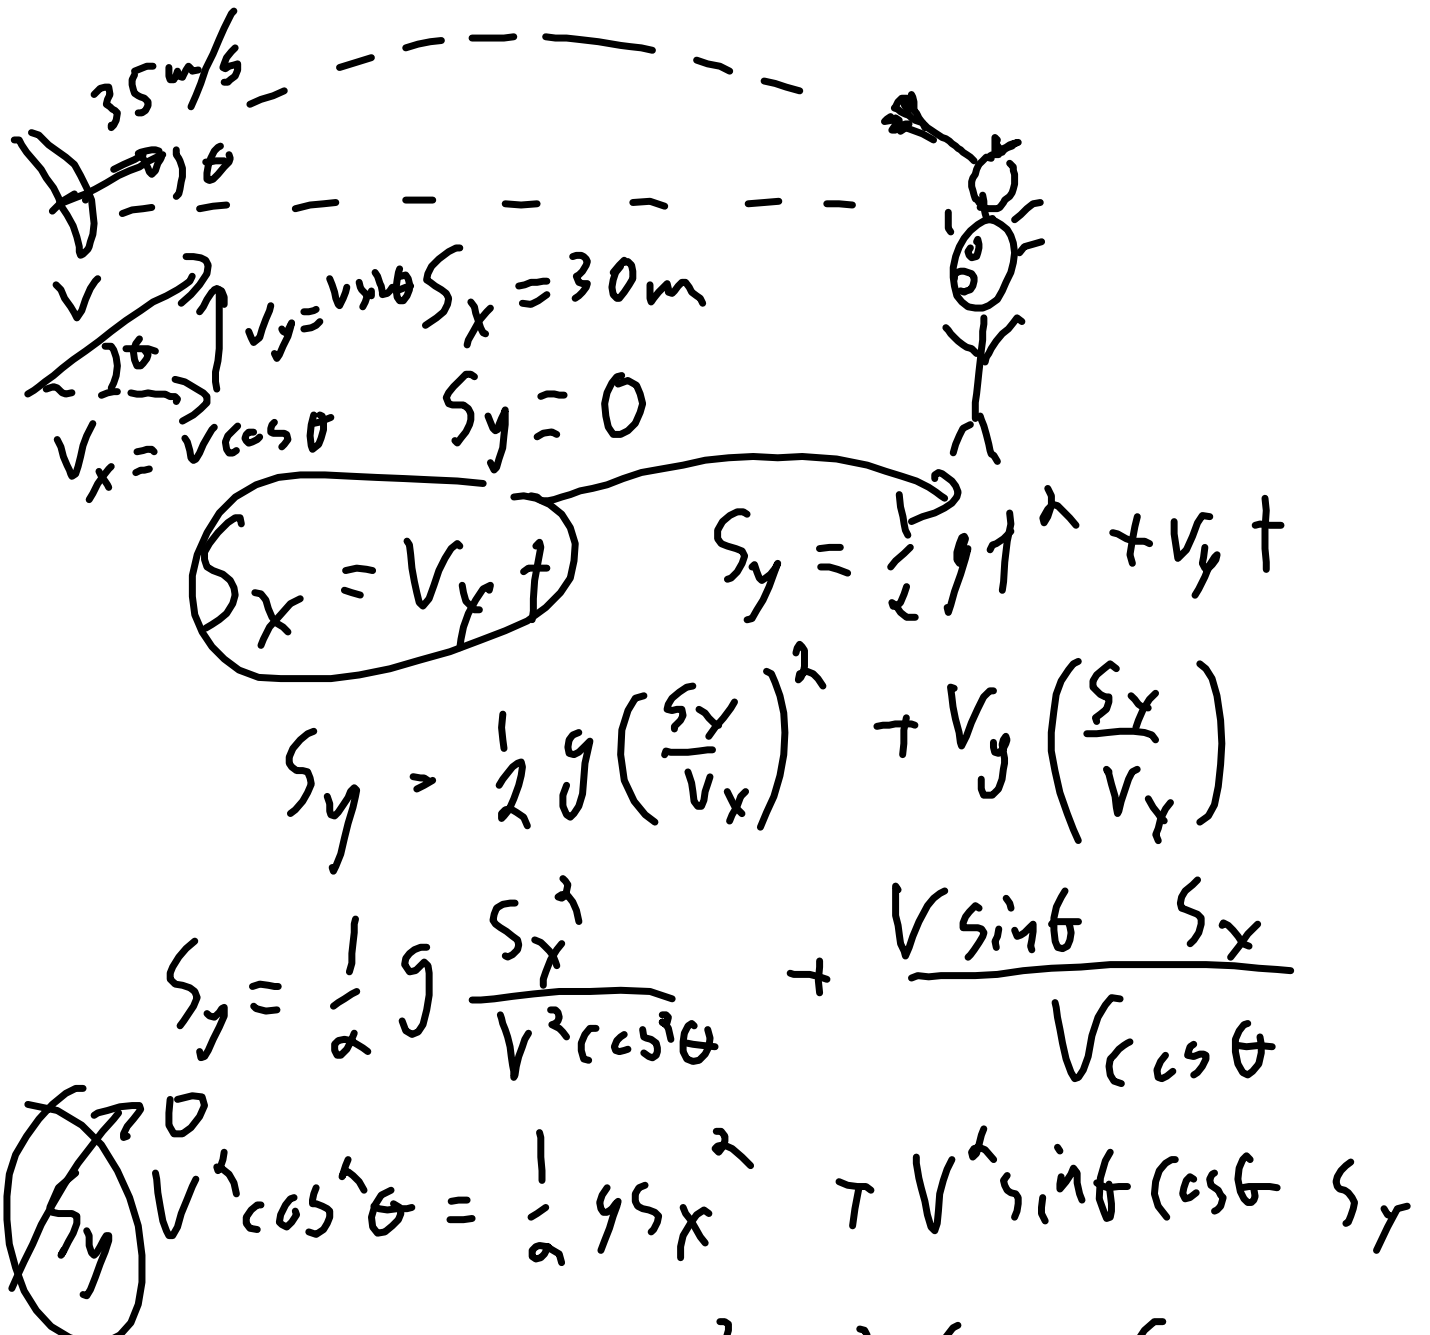 35 m/s
θ
V
θ
V_y = V sinθ
S_x = 30m
V_x = V cos θ
S_y = 0
S_x = V_x t
S_y = 1/2 g t^2 + V_y t
S_y = 1/2 g (S_x / V_x)^2 + V_y (S_x / V_x)
S_y = 1/2 g S_x^2 / V^2 cos^2 θ + V sin θ S_x / V cos θ
0
S_y V^2 cos^2 θ = 1/2 g S_x^2 + V^2 sin θ cos θ S_x